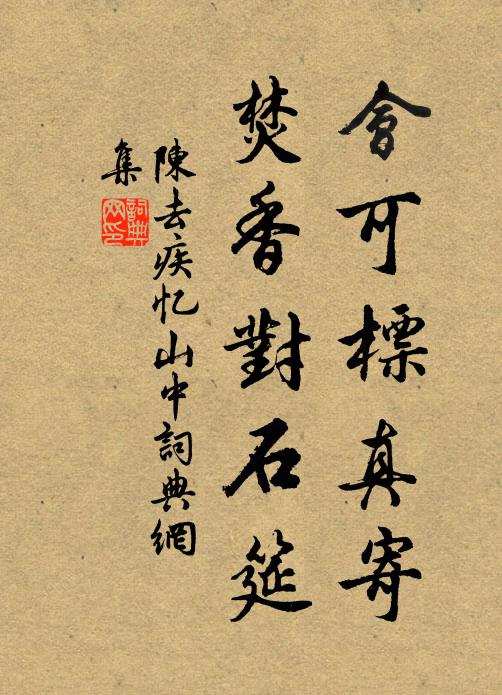 會可標真寄
焚香對石筵
陳去疾忆山中詞典網
集
詞典網印